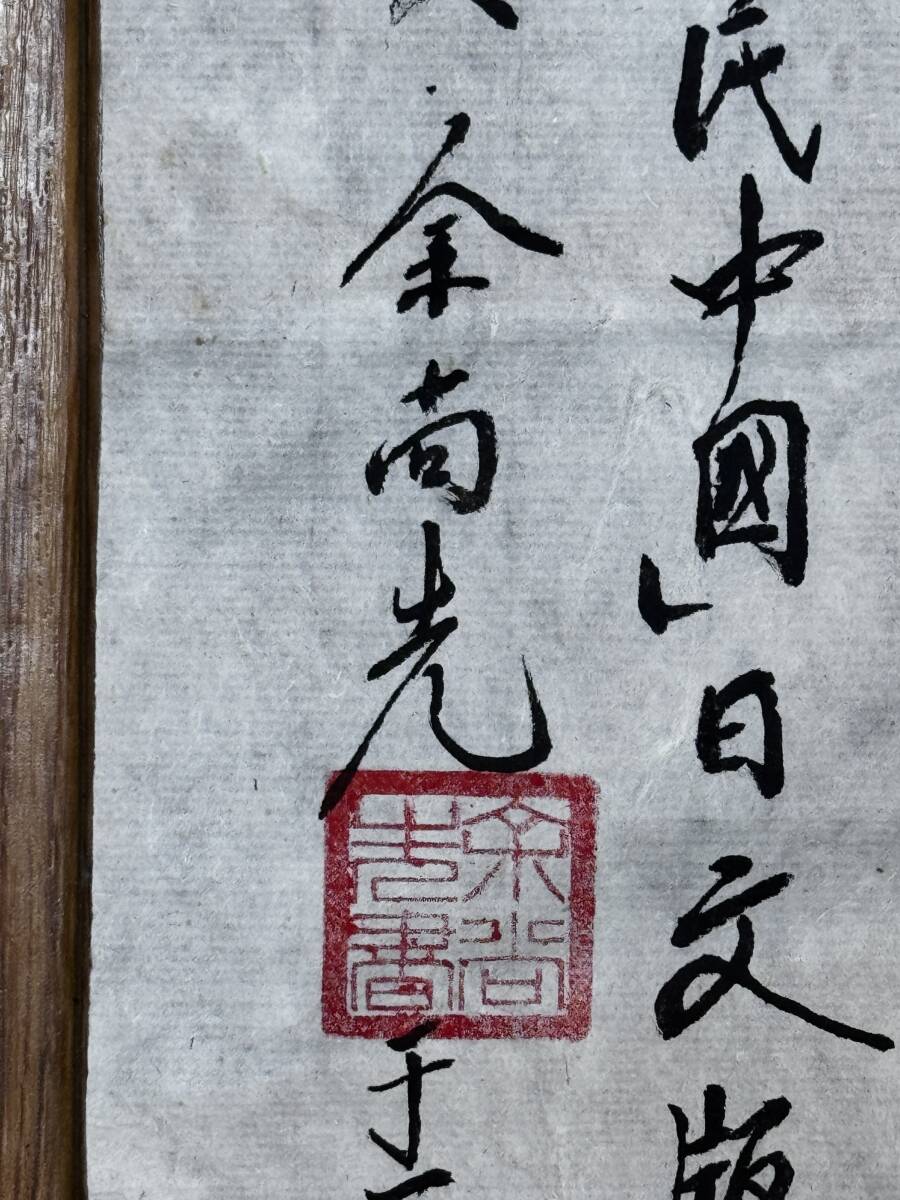 民中國」日文版
余尚先
余尚先書
于